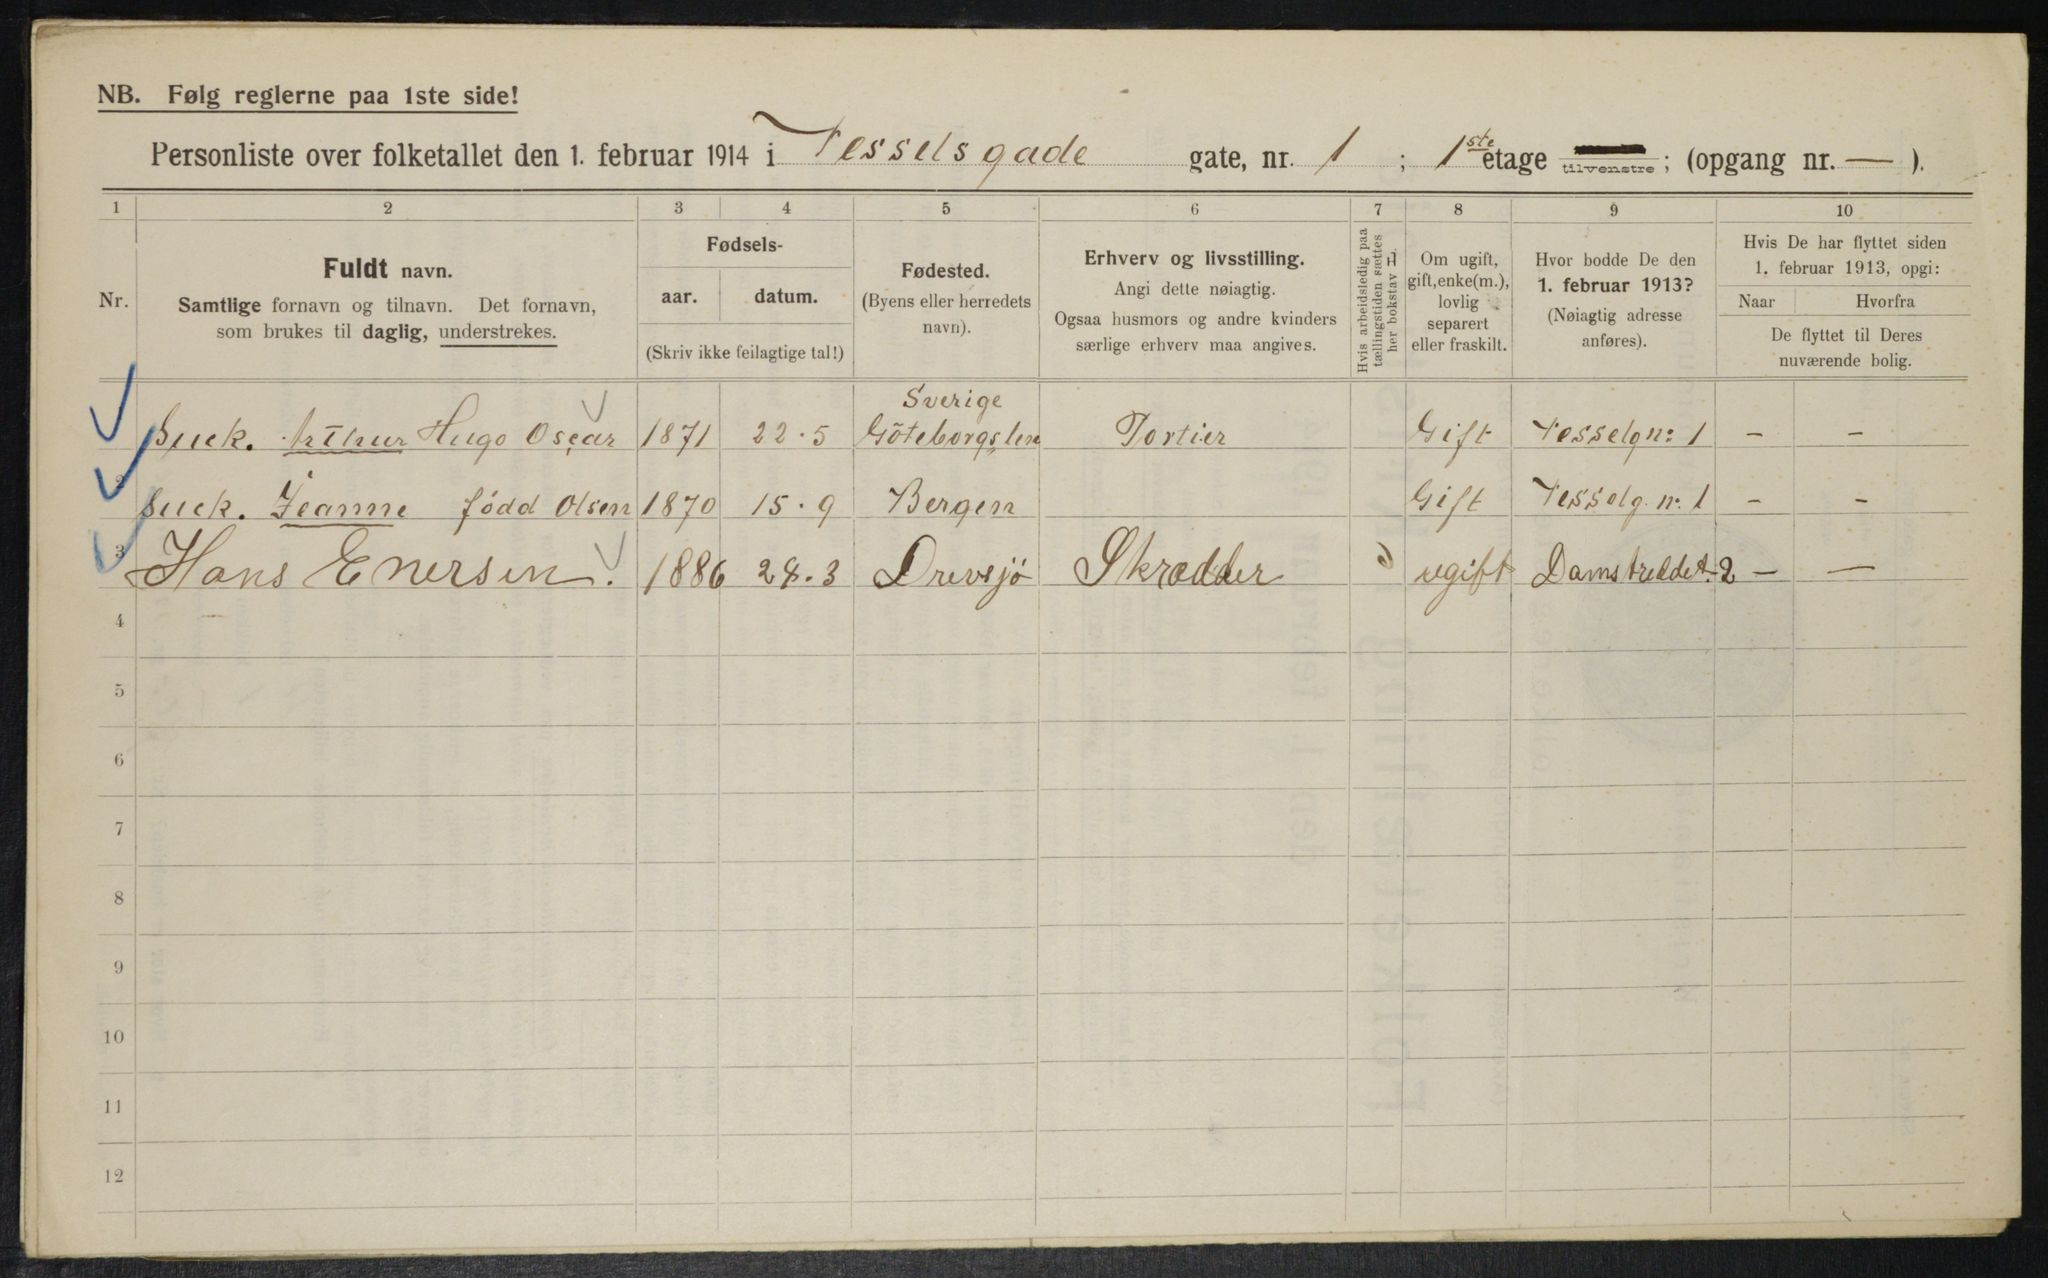 NB. Følg reglerne paa 1ste side!
Personliste over folketallet den 1. februar 1914 i Tesselsgade gate, nr. 1 ; 1ste etage tilvenstre; (opgang nr. — ).
1 2 3 4 5 6 7 8 9 10
Nr.
Fuldt navn.
Samtlige fornavn og tilnavn. Det fornavn,
som brukes til daglig, understrekes.
Fødsels-
aar. datum.
(Skriv ikke feilagtige tal!)
Fødested.
(Byens eller herredets
navn).
Erhverv og livsstilling.
Angi dette nøiagtig.
Ogsaa husmors og andre kvinders
særlige erhverv maa angives.
Hvis arbeidsledig paa
tællingstiden sættes
her bokstav L.
Om ugift,
gift, enke(m.),
lovlig
separert
eller fraskilt.
Hvor bodde De den
1. februar 1913?
(Nøiagtig adresse
anføres).
Hvis De har flyttet siden
1. februar 1913, opgi:
Naar Hvorfra
De flyttet til Deres
nuværende bolig.
Suck. Arthur Hugo Oscar 1871 22.5 Sverige Göteborgslen Portier Gift Tesselg n: 1 — —
2 Suck. Jeanne född Olsen 1870 15.9 Bergen Gift Tesselg. n: 1 — —
3 Hans Enersen. 1886 28.3 Drevsjö Skrædder ugift Damstreddet. 2 — —
4
5
6
7
8
9
10
11
12